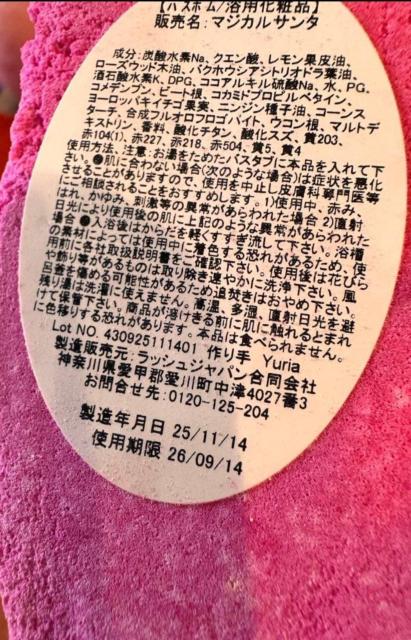 【バスボム/浴用化粧品】
販売名:マジカルサンタ
成分:炭酸水素Na、クエン酸、レモン果皮油、
ローズウッド木油、バクホウシアシトリオドラ葉油、
酒石酸水素K、DPG、ココアルキル硫酸Na、水、PG、
コメデンプン、ビート根、コカミドプロピルベタイン、
ヨーロッパキイチゴ果実、ニンジン種子油、コーンス
ターチ、合成フルオロフロゴパイト、ウコン根、マルトデ
キストリン、香料、酸化チタン、酸化スズ、黄203、
赤104(1)、赤227、赤218、赤504、黄5、黄4
使用方法、注意:お湯をためたバスタブに本品を入れて下
さい。●肌に合わない場合(次のような場合)は症状を悪化
させることがありますので、使用を中止し皮膚科専門医等
にご相談されることをおすすめします。1)使用中、赤み、
はれ、かゆみ、刺激等の異常があらわれた場合 2)直射
日光により使用後の肌に上記のような異常があらわれた
場合 ●入浴後はからだを軽くすすぎ流して下さい。浴槽
の素材によっては使用中に着色する恐れがあるため、使
用前に各社取扱説明書をご確認下さい。使用後は花びら
や飾り等があるものは取り除き速やかに洗浄下さい。風
呂釜を傷める可能性があるため追焚きはおやめ下さい。
残り湯は洗濯に使えません。高温、多湿、直射日光を避
けて保管下さい。商品が溶けきる前に肌に触れるとまれ
に色移りする恐れがあります。本品は食べられません。
Lot NO. 430925111401 作り手 Yuria
製造販売元:ラッシュジャパン合同会社
神奈川県愛甲郡愛川町中津4027番3
お問合せ先:0120-125-204
製造年月日 25/11/14
使用期限 26/09/14